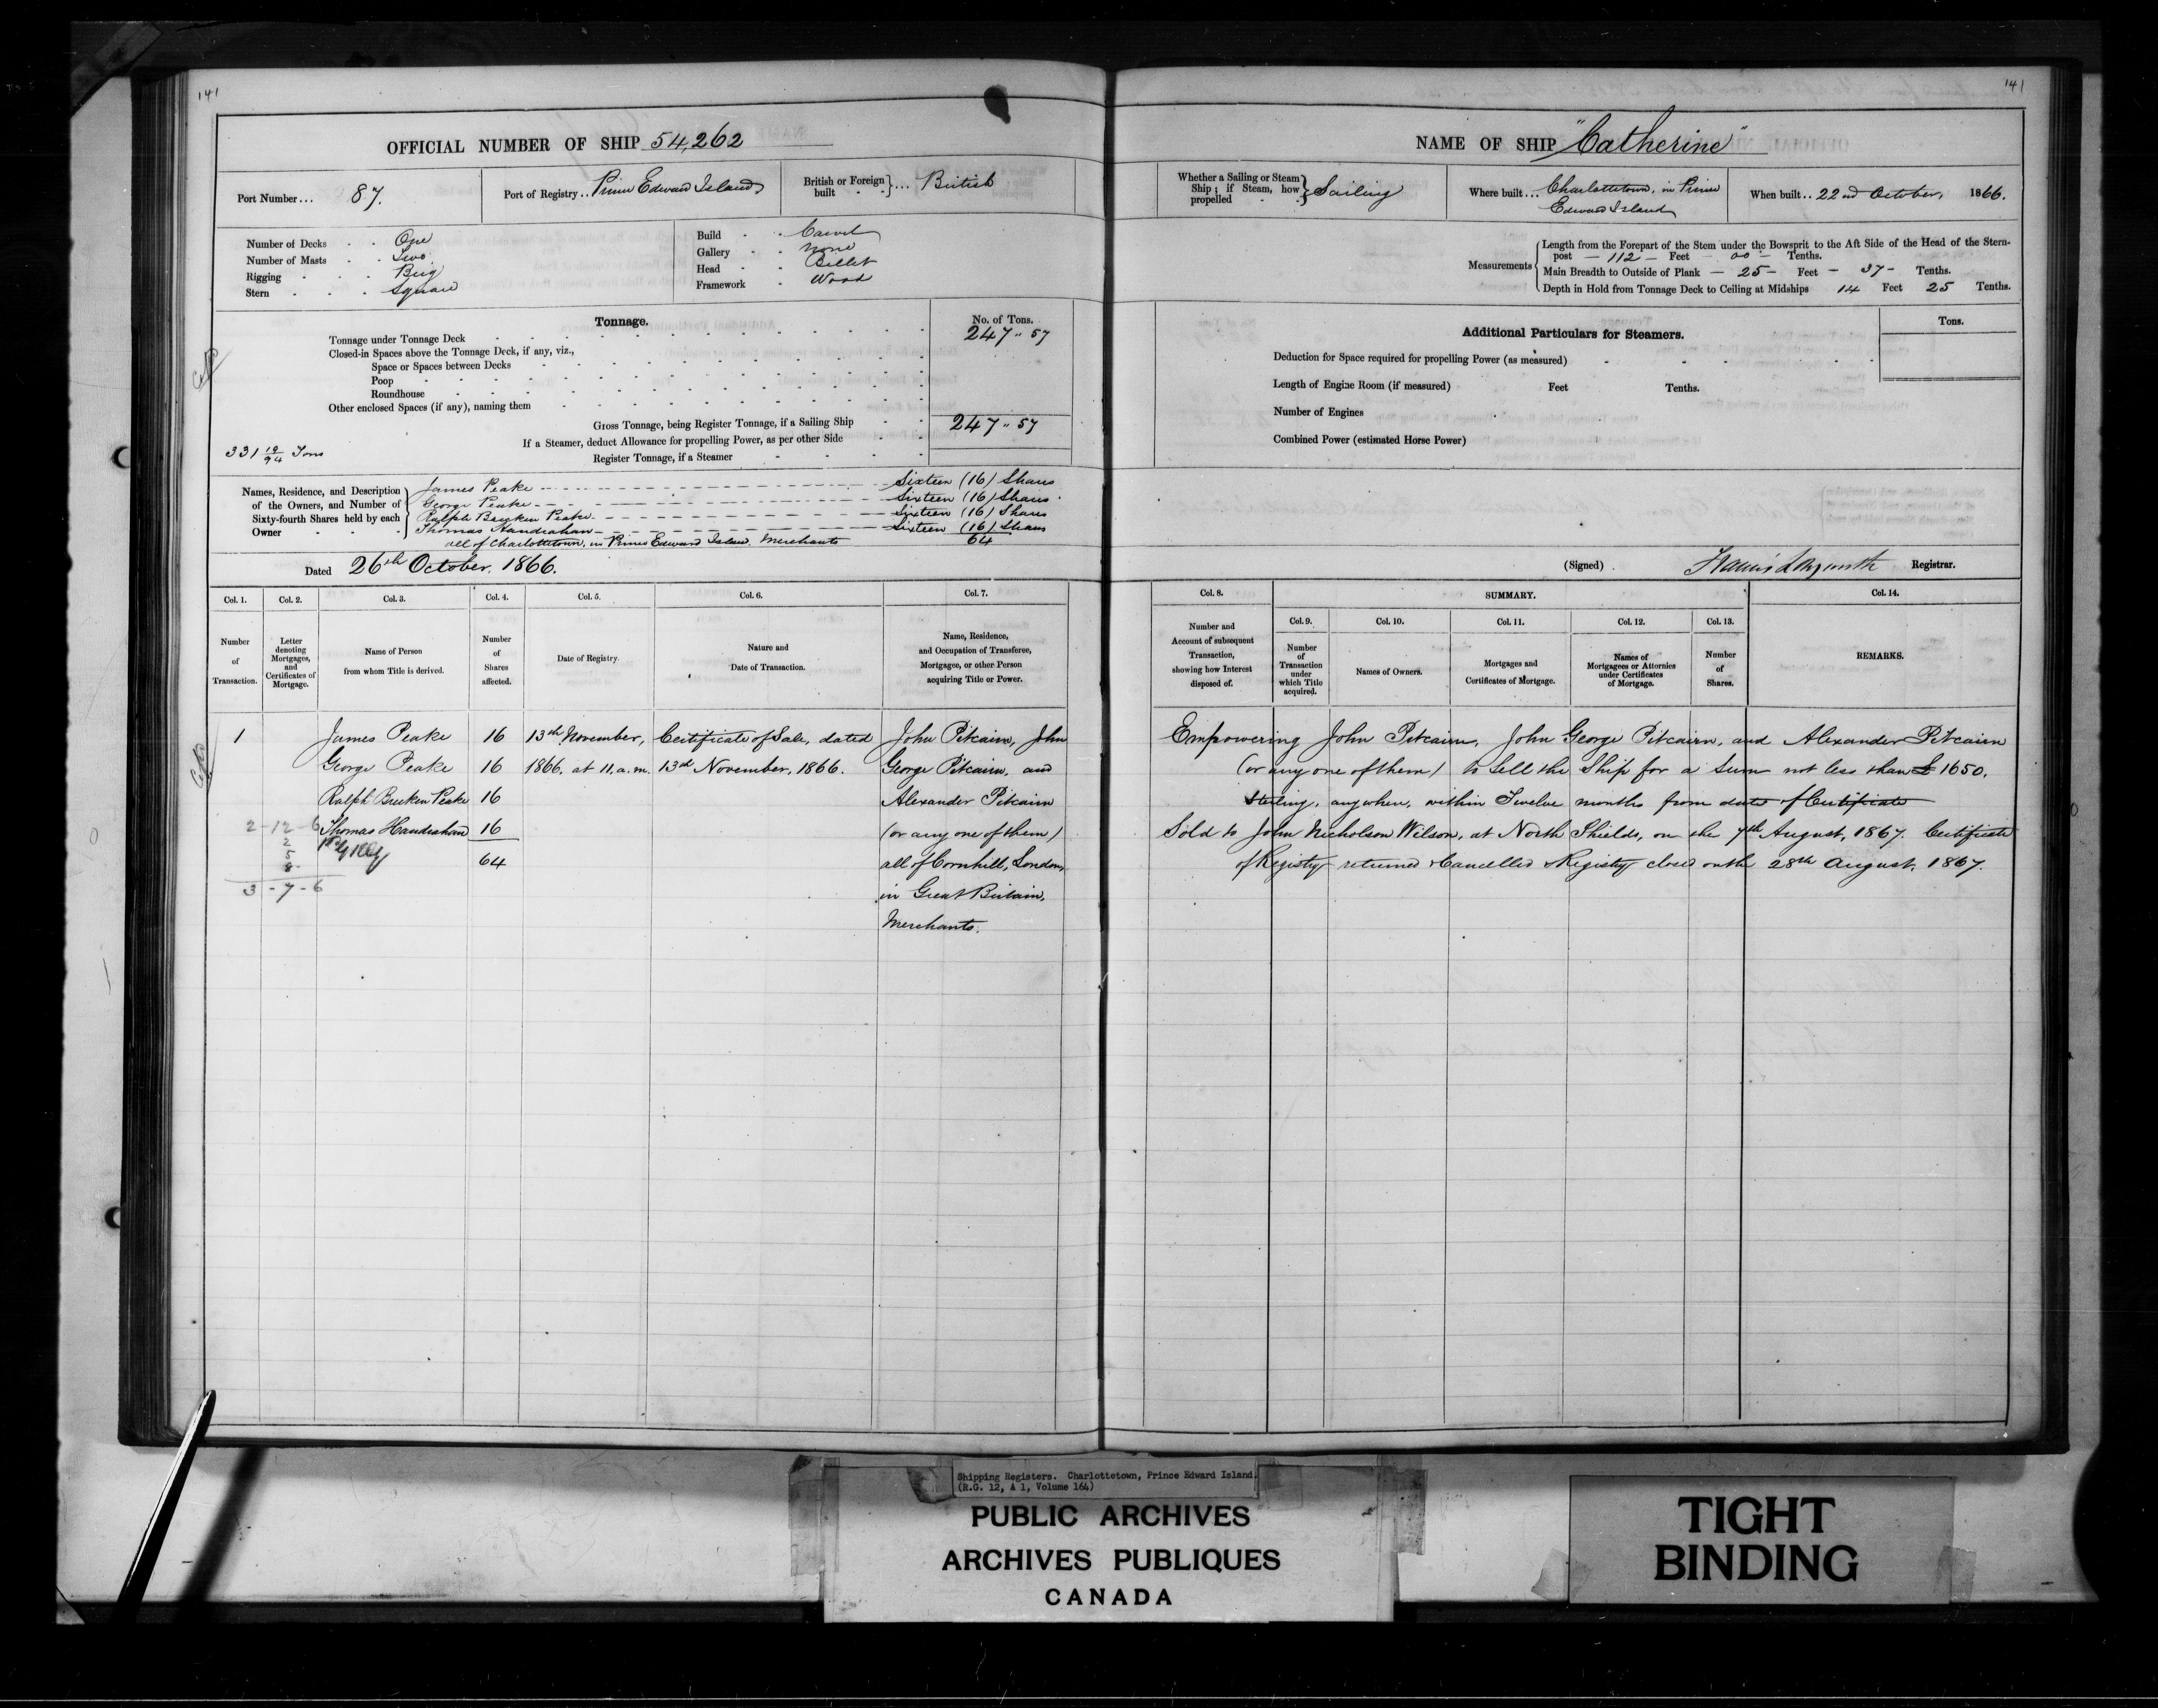 141
OFFICIAL NUMBER OF SHIP 54,262
Port Number... 87.
Port of Registry.. Prince Edward Island
British or Foreign built }... British
Number of Decks One
Number of Masts Two
Rigging Brig
Stern Square
Build Carvel
Gallery None
Head Billet
Framework Wood
Tonnage.
No. of Tons.
Tonnage under Tonnage Deck 247 " 57
Closed-in Spaces above the Tonnage Deck, if any, viz.,
Space or Spaces between Decks
Poop
Roundhouse
Other enclosed Spaces (if any), naming them
Gross Tonnage, being Register Tonnage, if a Sailing Ship 247 " 57
If a Steamer, deduct Allowance for propelling Power, as per other Side
331 19/94 Tons
Register Tonnage, if a Steamer
Names, Residence, and Description of the Owners, and Number of Sixty-fourth Shares held by each Owner
James Peake Sixteen (16) Shares
George Peake Sixteen (16) Shares
Ralph Brecken Peake Sixteen (16) Shares
Thomas Handrahan Sixteen (16) Shares
all of Charlottetown, in Prince Edward Island, Merchants 64
Dated 26th October. 1866.
Col. 1. Col. 2. Col. 3. Col. 4. Col. 5. Col. 6. Col. 7.
Number of Transaction.
Letter denoting Mortgages, and Certificates of Mortgage.
Name of Person from whom Title is derived.
Number of Shares affected.
Date of Registry.
Nature and Date of Transaction.
Name, Residence, and Occupation of Transferee, Mortgagee, or other Person acquiring Title or Power.
1 James Peake 16 13th November, Certificate of Sale, dated John Pitcairn, John
George Peake 16 1866, at 11, a.m. 13d November, 1866. George Pitcairn, and
Ralph Brecken Peake 16 Alexander Pitcairn
2-12-6 Thomas Handrahan 16 (or any one of them)
2
5
64 all of Cornhill, London,
8
3-7-6 in Great Britain,
Merchants.
141
NAME OF SHIP "Catherine"
Whether a Sailing or Steam Ship; if Steam, how propelled } Sailing
Where built... Charlottetown, in Prince Edward Island
When built.. 22nd October, 1866.
Measurements
Length from the Forepart of the Stem under the Bowsprit to the Aft Side of the Head of the Stern-
post — 112 — Feet — 00 — Tenths.
Main Breadth to Outside of Plank — 25 — Feet — 37 — Tenths.
Depth in Hold from Tonnage Deck to Ceiling at Midships 14 Feet 25 Tenths.
Additional Particulars for Steamers.
Tons.
Deduction for Space required for propelling Power (as measured)
Length of Engine Room (if measured) Feet Tenths.
Number of Engines
Combined Power (estimated Horse Power)
(Signed) Registrar.
Col. 8. SUMMARY. Col. 14.
Col. 9. Col. 10. Col. 11. Col. 12. Col. 13.
Number and Account of subsequent Transaction, showing how Interest disposed of.
Number of Transaction under which Title acquired.
Names of Owners.
Mortgages and Certificates of Mortgage.
Names of Mortgagees or Attornies under Certificates of Mortgage.
Number of Shares.
REMARKS.
Empowering John Pitcairn, John George Pitcairn, and Alexander Pitcairn
(or any one of them) to sell the Ship for a Sum not less than £1650.
Sterling, anywhere, within Twelve months from date of Certificate
Sold to John Nicholson Wilson, at North Shields, on the 7th August, 1867. Certificate
of Registry returned & Cancelled & Registry closed on the 28th August, 1867.
Shipping Registers. Charlottetown, Prince Edward Island.
(R.G. 12, A 1, Volume 164)
PUBLIC ARCHIVES
ARCHIVES PUBLIQUES
CANADA
TIGHT
BINDING